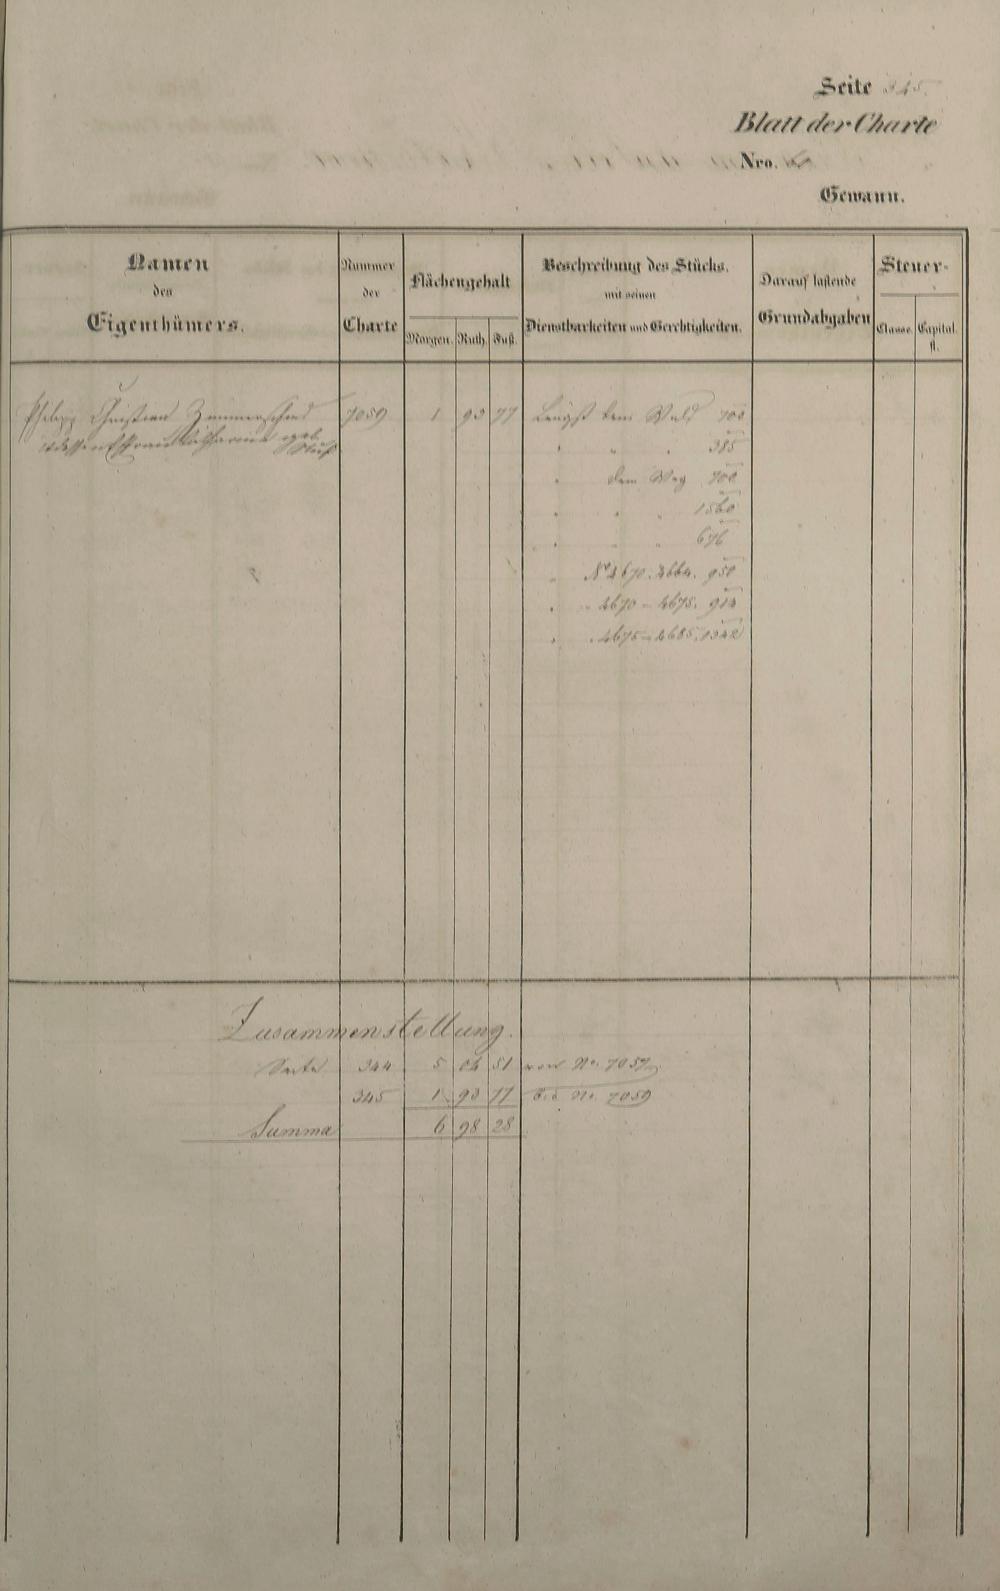 Seite 345.
Blatt der Charte
Nro.
Gewann.
Namen des Eigenthümers.
Nummer der Charte
Flächengehalt
Morgen. Ruth. Fuß.
Beschreibung des Stücks. mit seinen Dienstbarkeiten und Gerechtigkeiten.
Darauf lastende Grundabgaben
Steuer-
Classe. Capital. fl.
Philipp Christian Zimmerschied 7059 1 93 77 Längst dem Wald 700
dessen Ehefrau Katharine geb. " " " 385
" dem Weg 700
" " " 1560
" " " 676
" No 4670. 4664. 950
" " 4670 – 4675. 914
" " 4675 – 4685. 1342
Zusammenstellung.
Seite 344 5 04 51 von No. 7057
345 1 93 77 bis No. 7059
Summa 6 98 28